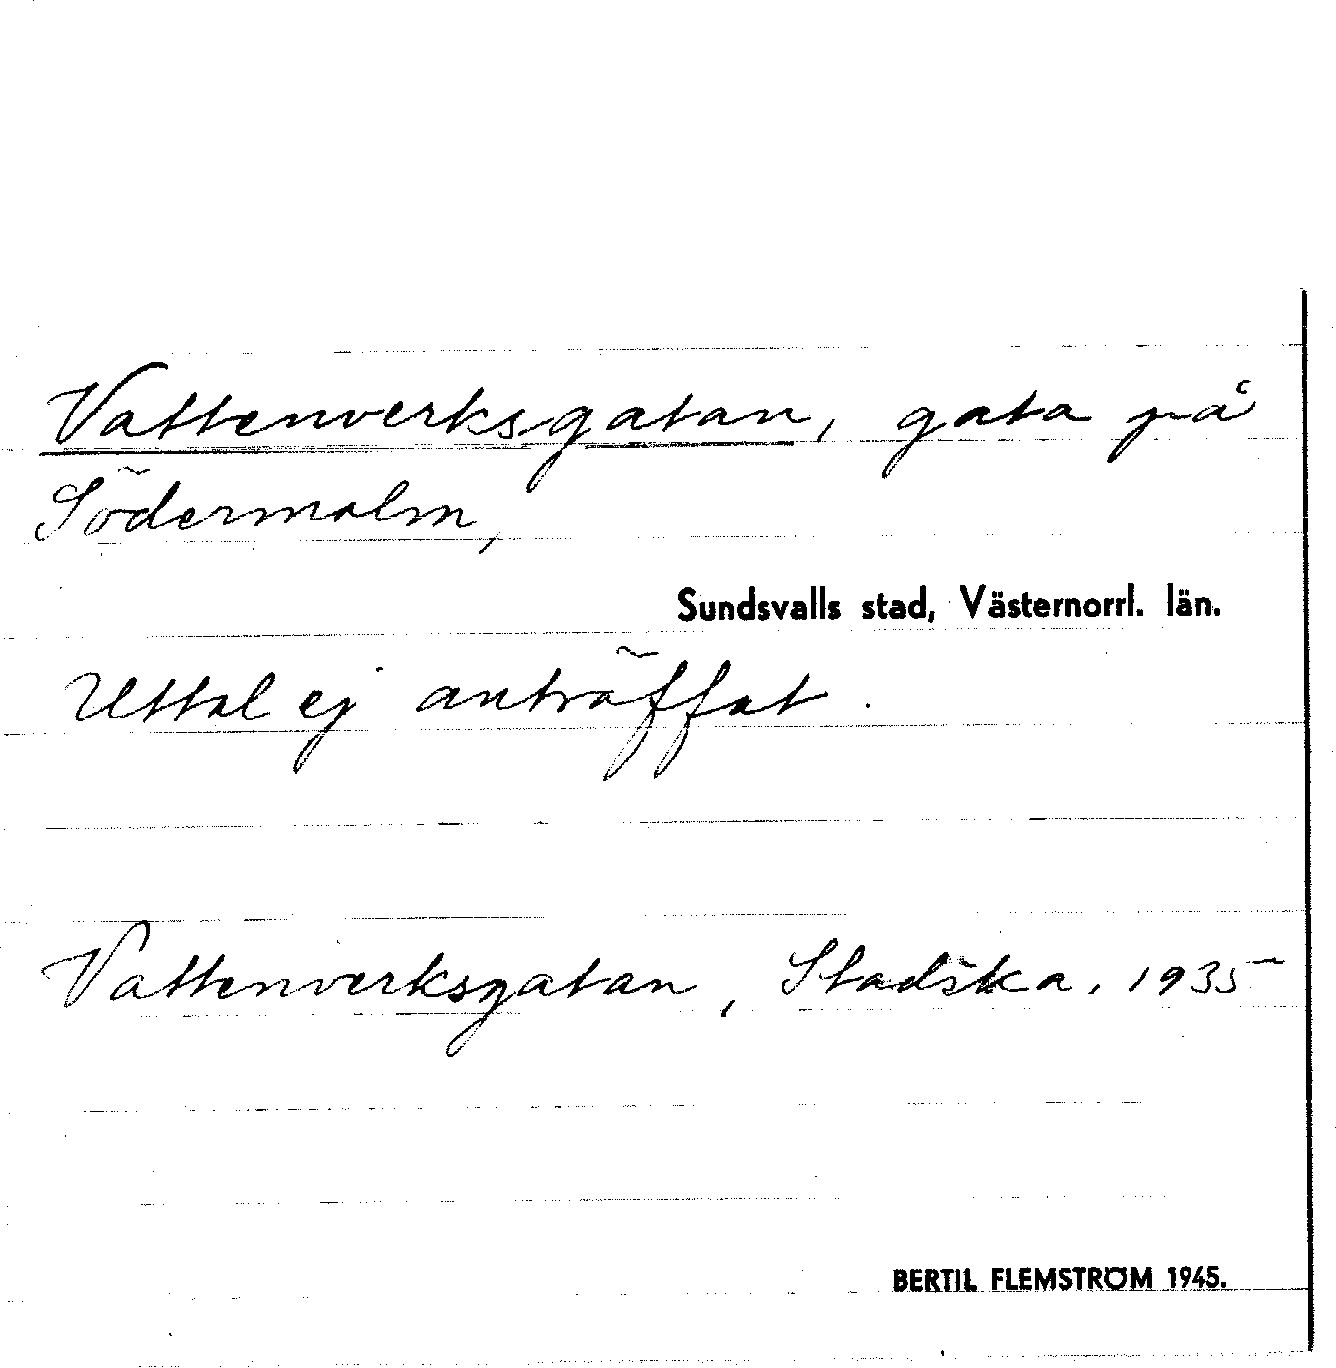 Vattenverksgatan, gata på
Södermalm,
Sundsvalls stad, Västernorrl. län.
Uttal ej anträffat.
Vattenverksgatan, Stadska. 1935
BERTIL FLEMSTRÖM 1945.